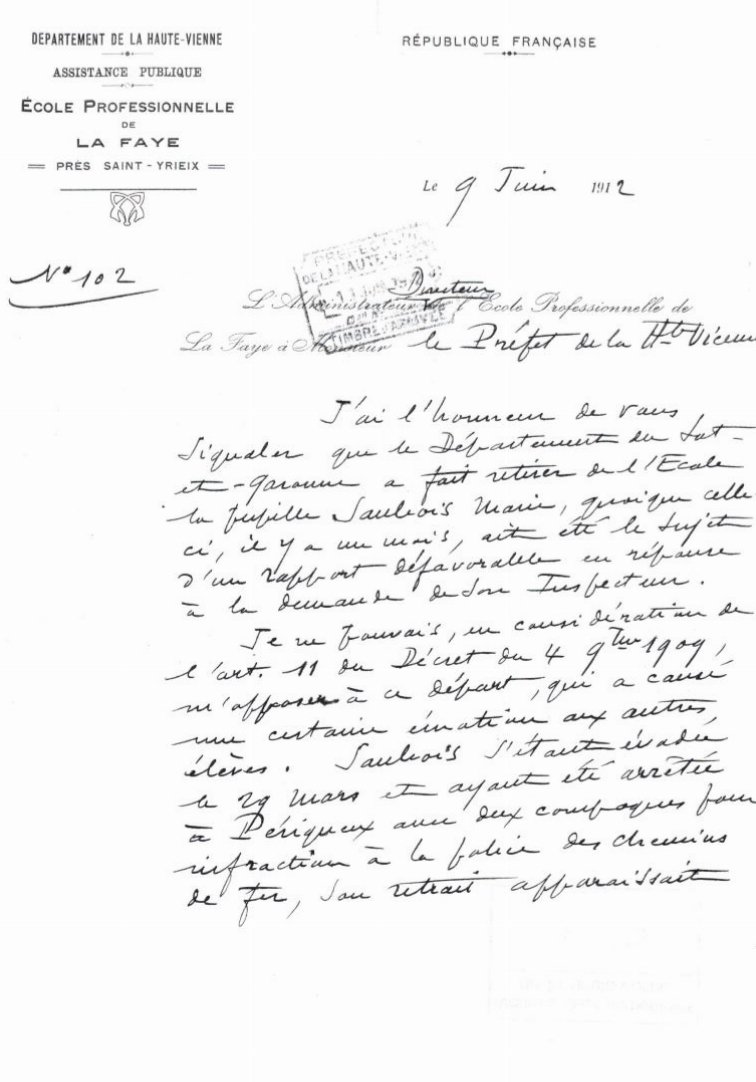 DEPARTEMENT DE LA HAUTE-VIENNE
ASSISTANCE PUBLIQUE
ÉCOLE PROFESSIONNELLE
DE
LA FAYE
PRÈS SAINT-YRIEIX
RÉPUBLIQUE FRANÇAISE
Le 9 Juin 1912
N° 102
PREFECTURE
DE LA HAUTE-VIENNE
TIMBRE D'ARRIVÉE
Directeur
L'Administrateur de l'Ecole Professionnelle de
La Faye à Monsieur le Préfet de la Hte Vienne
J'ai l'honneur de vous
signaler que le Département du Lot-
et-Garonne a fait retirer de l'Ecole
la pupille Saulvois Marie, quoique celle
ci, il y a un mois, ait été le sujet
d'un rapport défavorable en réponse
à la demande de son Inspecteur.
Je ne pouvais, en considération de
l'art. 11 du Décret du 4 9bre 1909,
m'opposer à ce départ, qui a causé
une certaine émotion aux autres
élèves. Saulvois s'étant évadée
le 29 Mars et ayant été arrêtée
à Périgueux avec deux compagnes pour
infraction à la police des chemins
de fer, son retrait apparaissait